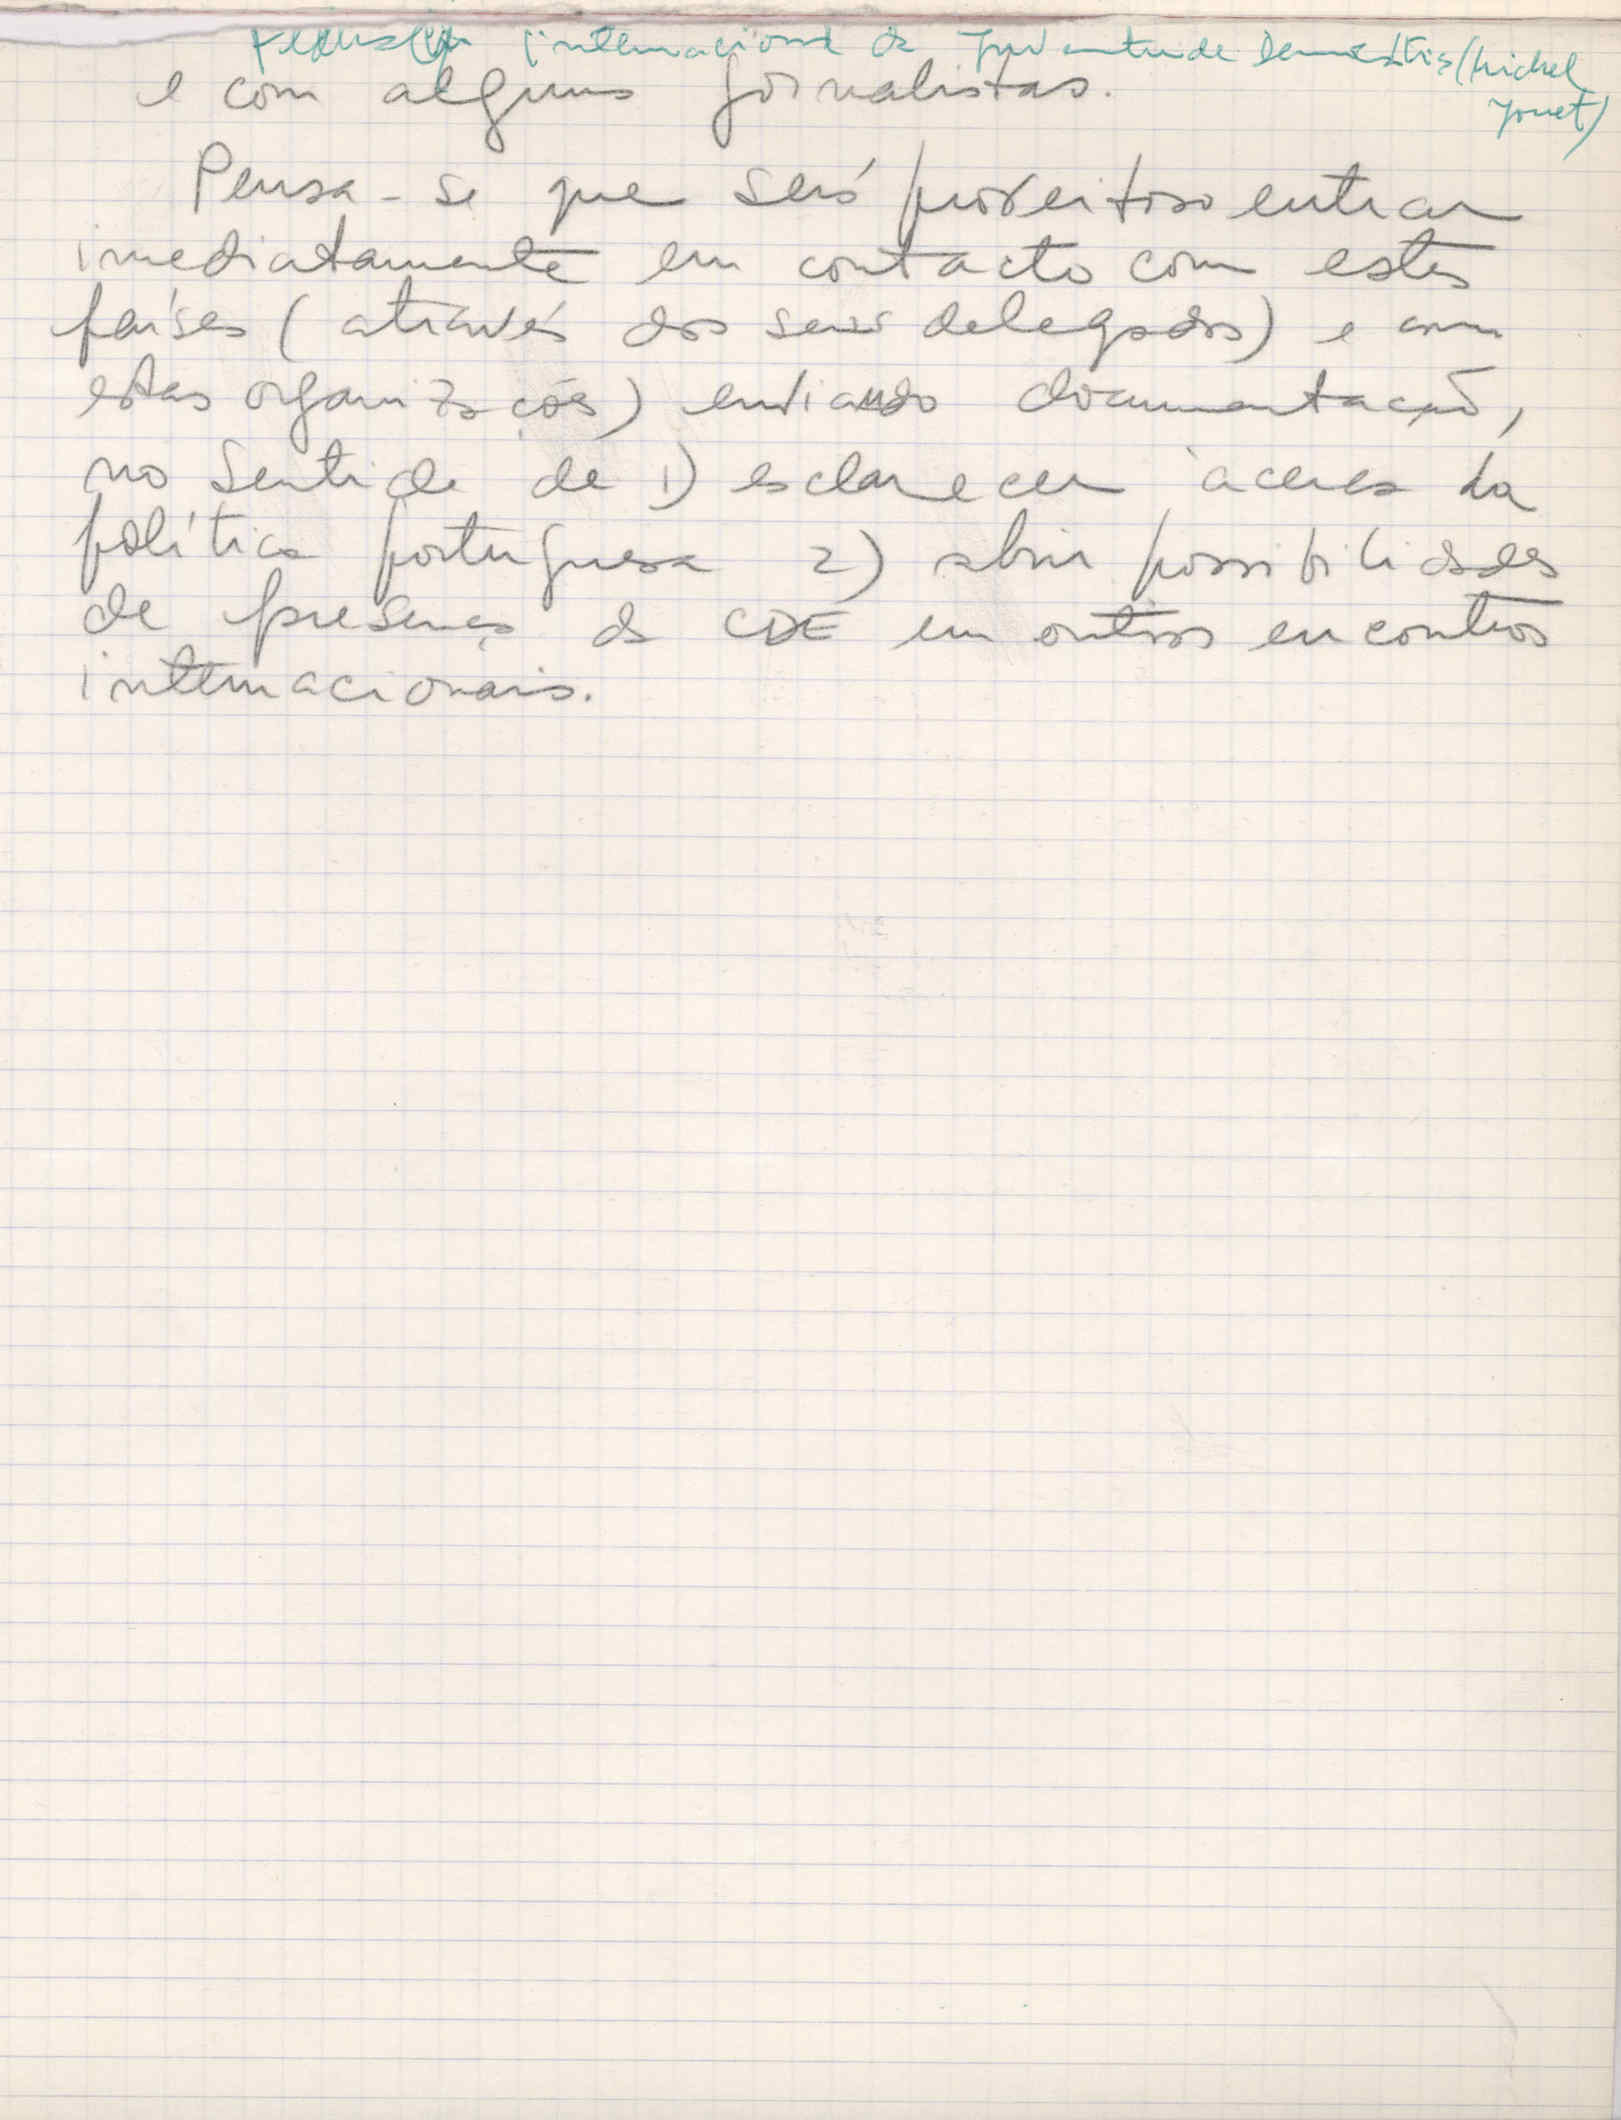 Federação internacional da Juventude Democrática (Michel
Jouet)
e com alguns jornalistas.
Pensa-se que será proveitoso entrar
imediatamente em contacto com estes
países (através dos seus delegados) e com
estas organizações) enviando documentação,
no sentido de 1) esclarecer àcerca da
política portuguesa 2) abrir possibilidades
de presença da CDE em outros encontros
internacionais.